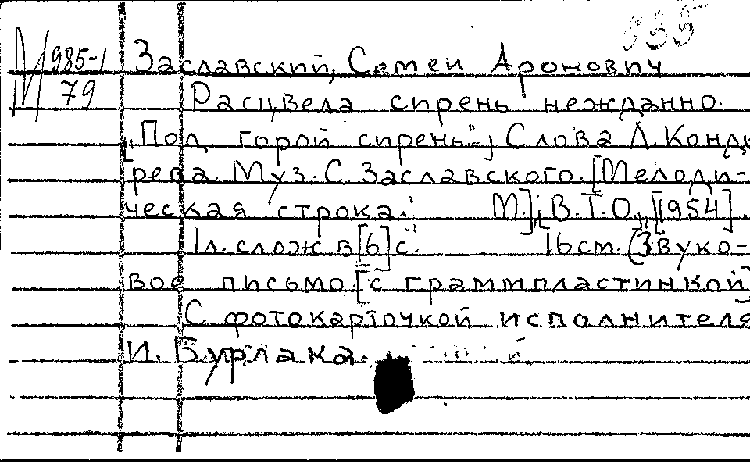 935
М 985-1
79
Заславский, Семен Аронович
Расцвела сирень нежданно.
["Под горой сирень".] Слова Л. Конды-
рева. Муз. С. Заславского. [Мелоди-
ческая строка. М.], "В.Т.О.", [1954]
1 л. слож. в [6] с. 16 см. (Звуко-
вое письмо [с граммпластинкой]
С фотокарточкой исполнителя
И. Бурлака.